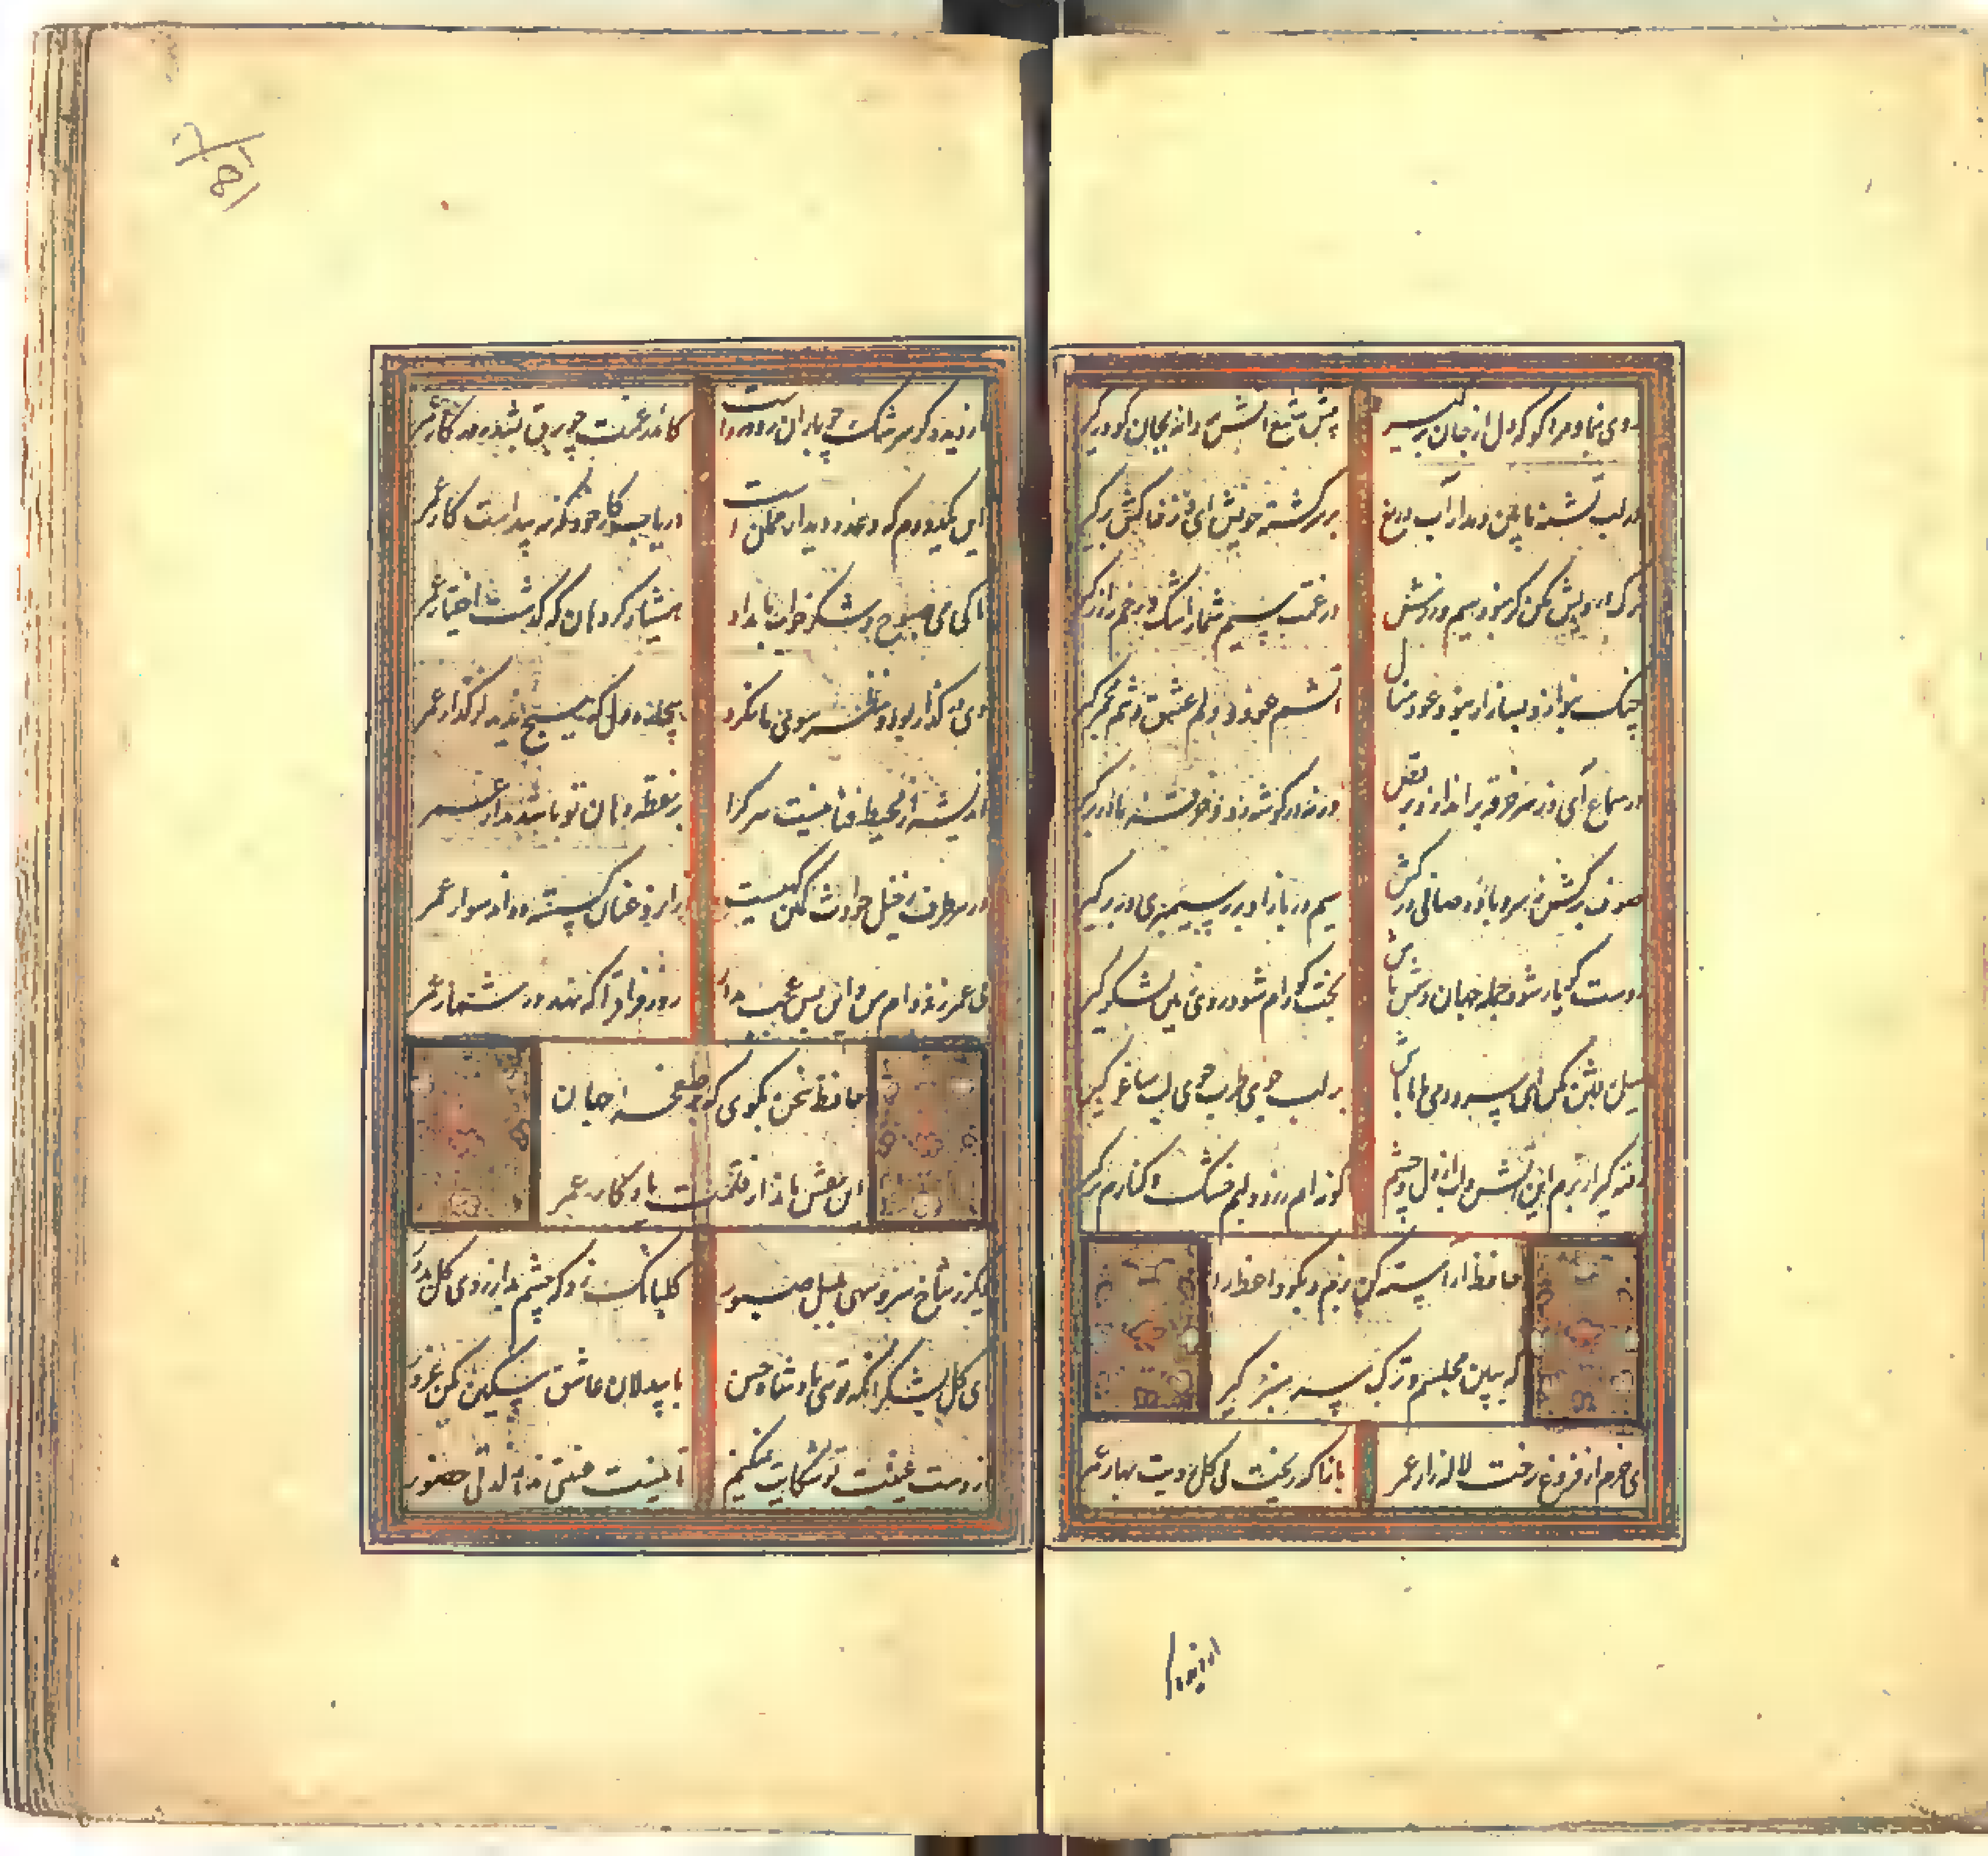 روی بنما و مرا گو که دل از جان برگیر پیش شمع آتش پروانه بجان گو درگیر
در لب تشنه ما بین و مدار آب دریغ بر سر کشته خویش آی و ز خاکش برگیر
ترک درویش مکن گر نبود سیم و زرش در غمت سیم شمار اشک و رخم را زر گیر
چنگ بنواز و بساز ار نبود عود منال آتشم عود و دلم عشق و تنم مجمر گیر
در سماع آی و ز سر خرقه برانداز و برقص ورنه در گوشه رو و خرقه ما در برگیر
صوف برکش ز سر و باده صافی درکش سیم در باز و بزر سیمبری در برگیر
دوست گو یار شو و جمله جهان دشمن باش بخت گو رام شو و روی زمین لشکر گیر
میل رفتن مکن ای دوست دمی با ما باش بر لب جوی طرب جوی و بکف ساغر گیر
رفته گیر از برم این آتش و آب از دل و چشم گونه‌ام زرد و لبم خشک و کنارم تر گیر
حافظ آراسته کن بزم و بگو واعظ را
که ببین مجلسم و ترک سر منبر گیر
ای خرم از فروغ رخت لاله زار عمر بازآ که ریخت بی گل رویت بهار عمر
از دیده گر سرشک چو باران رود رواست کاندر غمت چو برق بشد روزگار عمر
این یکدو دم که وعده دیدار ممکن است دریاب کار خود که نه پیداست کار عمر
تا کی می صبوح و شکر خواب بامداد هشیار گرد هان که گذشت اختیار عمر
دی در گذار بود و نظر سوی ما نکرد بیچاره دل که هیچ ندید از گذار عمر
اندیشه از محیط فنا نیست هر کرا بر نقطه دهان تو باشد مدار عمر
در هر طرف ز خیل حوادث کمین گهیست زان رو عنان گسسته دواند سوار عمر
بی عمر زنده‌ام من و این بس عجب مدار روز فراق را که نهد در شمار عمر
حافظ سخن بگوی که بر صفحه جهان
این نقش ماند از قلمت یادگار عمر
دیگر ز شاخ سرو سهی بلبل صبور گلبانگ زد که چشم بد از روی گل بدور
ای گل بشکر آنکه توئی پادشاه حسن با بیدلان عاشق مسکین مکن غرور
از دست غیبت تو شکایت نمیکنم تا نیست غیبتی نبود لذت حضور
از دیده